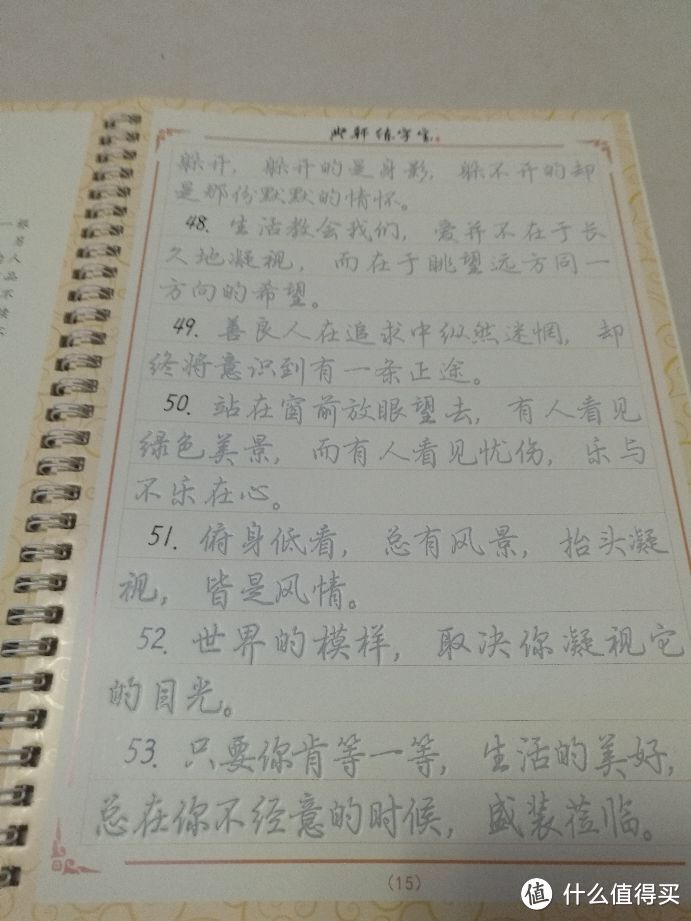 躲开，躲开的是身影，躲不开的却
是那份默默的情怀。
48. 生活教会我们，爱并不在于长
久地凝视，而在于眺望远方同一
方向的希望。
49. 善良人在追求中纵然迷惘，却
终将意识到有一条正途。
50. 站在窗前放眼望去，有人看见
绿色美景，而有人看见忧伤，乐与
不乐在心。
51. 俯身低看，总有风景，抬头凝
视，皆是风情。
52. 世界的模样，取决你凝视它
的目光。
53. 只要你肯等一等，生活的美好，
总在你不经意的时候，盛装莅临。
(15)
值 什么值得买